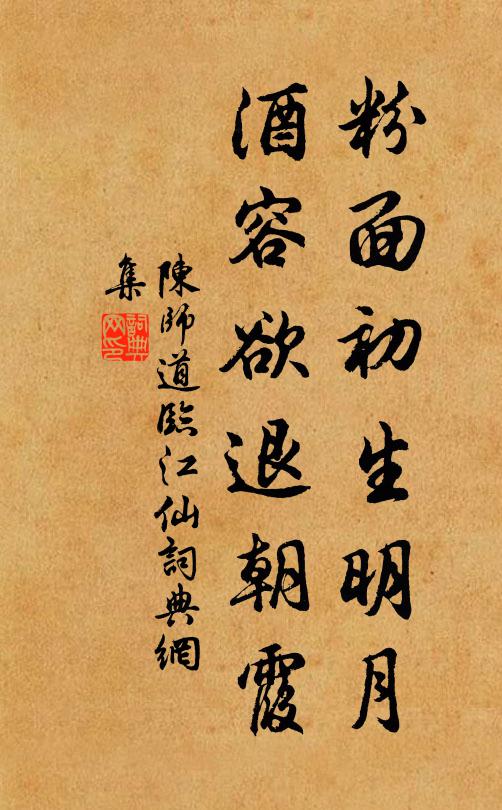 粉面初生明月
酒容欲退朝霞
陳師道臨江仙詞典網
集
詞典網印